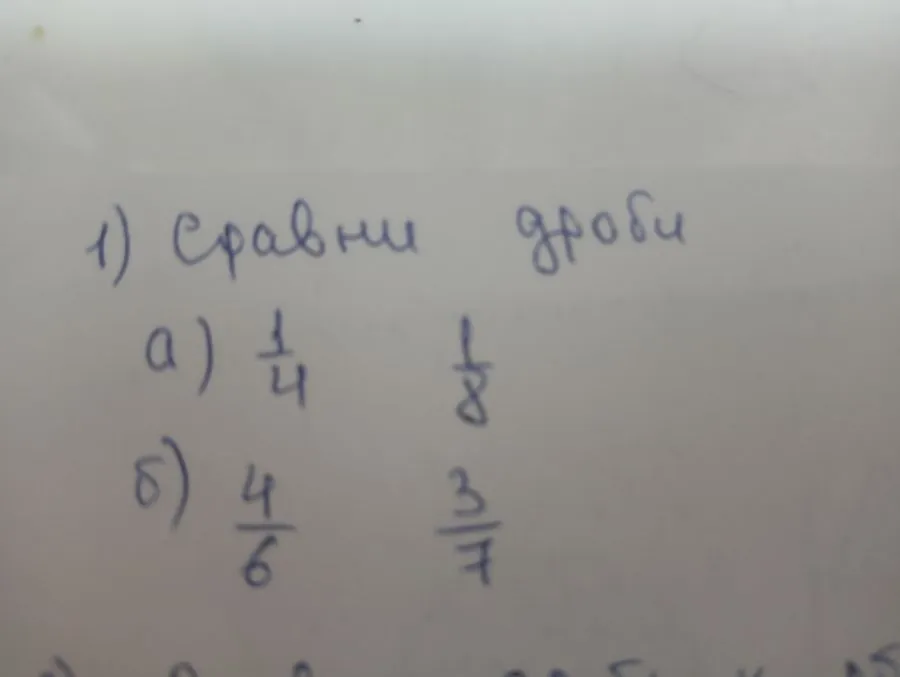 1) Сравни дроби
а) 1/4 1/8
б) 4/6 3/7